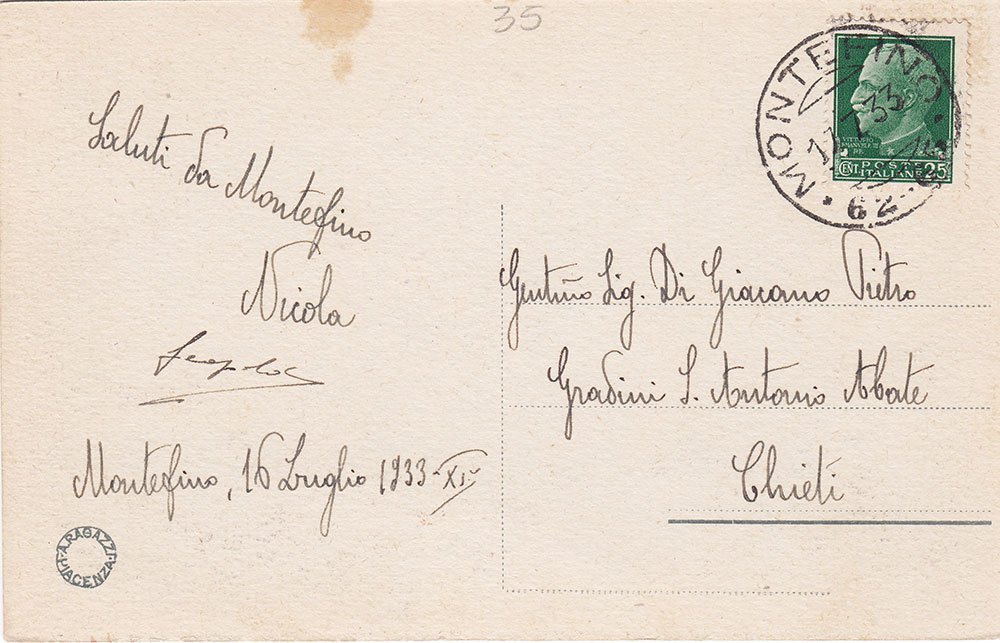 35
Saluti da Montefino
Nicola
Montefino, 16 Luglio 1933-XI°
A. RAGAZZI
PIACENZA
MONTEFINO
17.7.33
62-9
VITTORIO
EMANUELE III
RE
CENT. POSTE 25
ITALIANE
Gent.mo Sig. Di Giacomo Pietro
Gradini S. Antonio Abate
Chieti